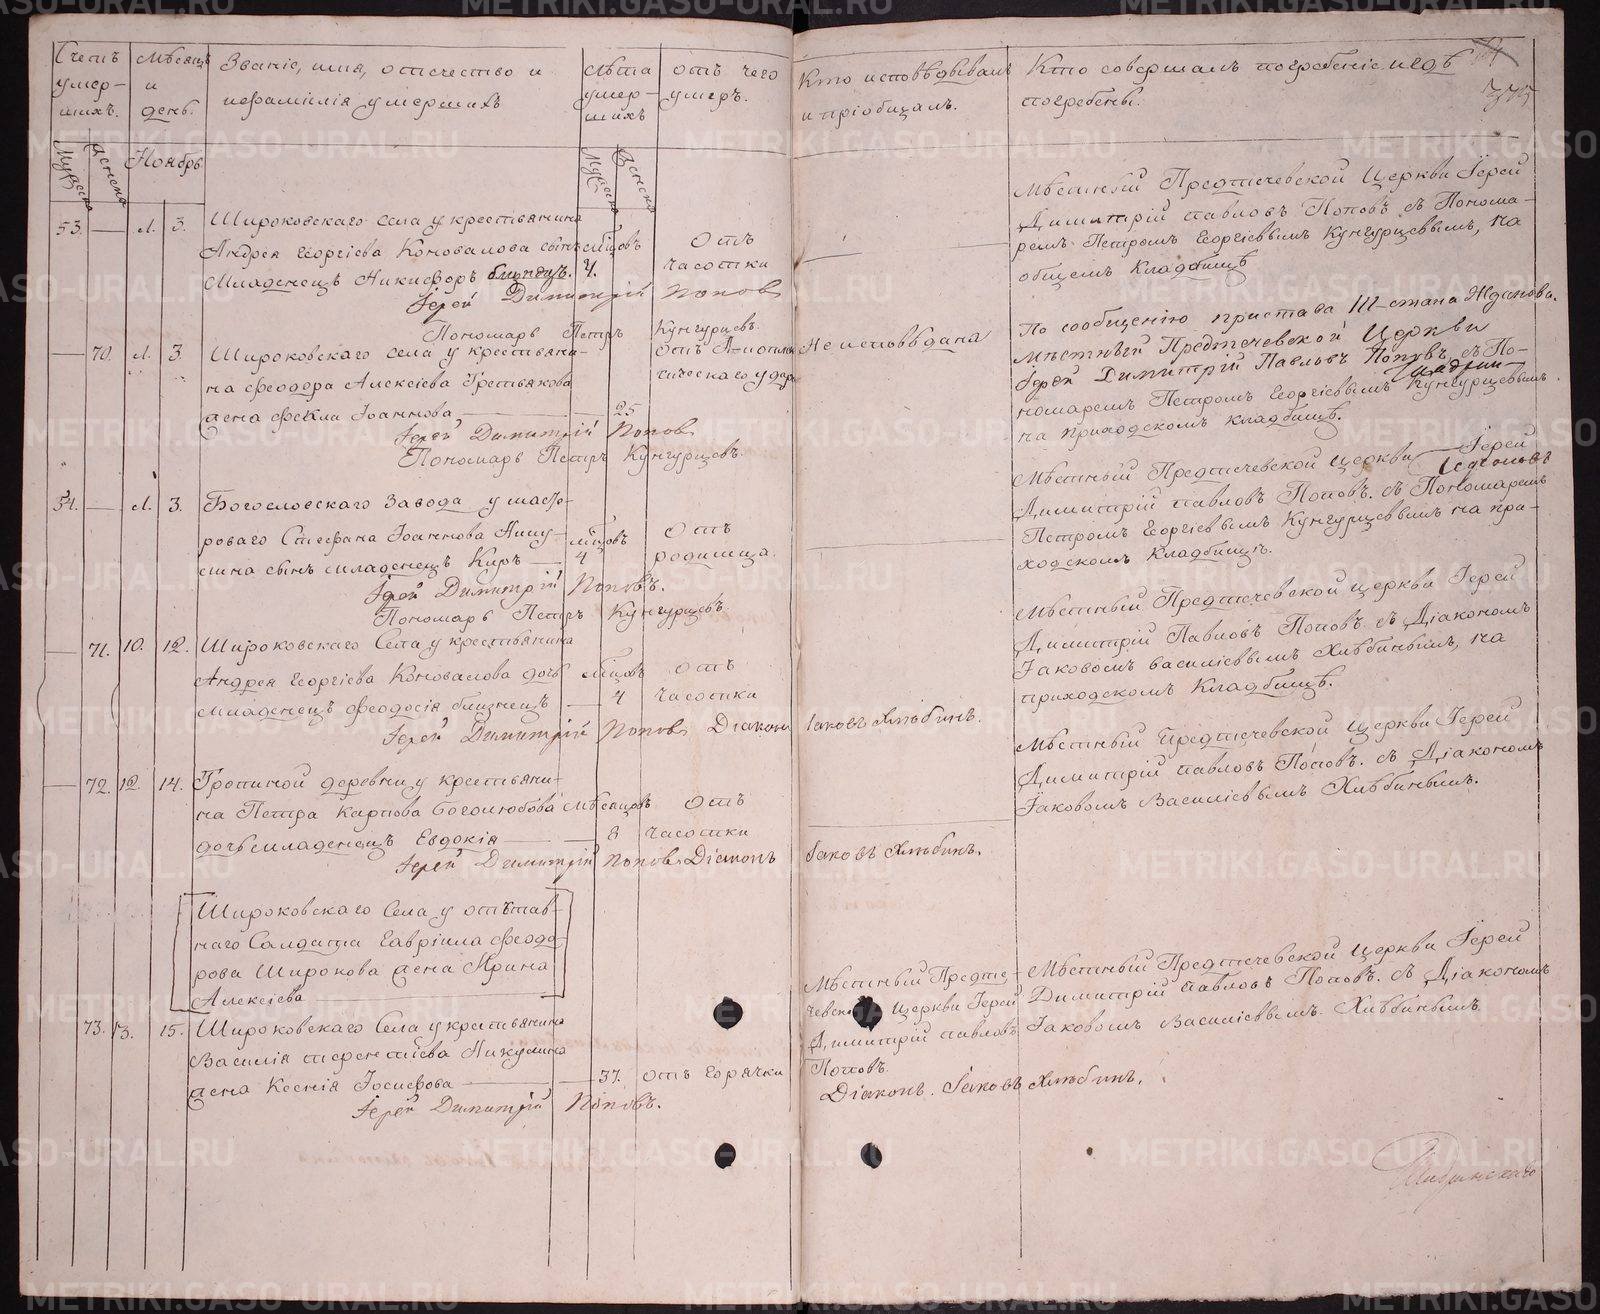 Счетъ умер- шихъ.
Мѣсяцъ и день.
Званіе, имя, отечество и
нефамилія умершихъ
Лѣта умер- шихъ
отъ чего умеръ.
Кто исповѣдывалъ
и пріобщалъ.
Кто совершалъ погребеніе и гдѣ
погребены.
Мужеска
Женска
Ноябрь
Мужеска
Женска
53. — 1. 3.
Широковскаго села у крестьянина
Андрея Георгіева Коновалова сынъ
младенецъ Никифоръ близнецъ.
мѣсцовъ 4.
отъ
часотки
Іерей Димитрій Поповъ
Пономарь Петръ Кунгурцевъ.
Мѣстный Предтечевской Церкви Іерей
Димитрій Павловъ Поповъ съ Понома-
ремъ Петромъ Георгіевымъ Кунгурцевымъ, на
общемъ Кладбищѣ
— 70. 1. 3.
Широковскаго села у крестьяни-
на Феодора Алексіева Третьякова
жена Фекла Іоаннова — 25
отъ Апопле
ческаго удара
Іерей Димитрій Поповъ
Пономарь Петръ Кунгурцевъ.
Не исповѣдана
По сообщенію пристава III стана Жданова.
Мѣстный Предтечевской Церкви
Іерей Димитрій Павловъ Поповъ, съ По-
номаремъ Петромъ Георгіевымъ Кунгурцевымъ.
на приходскомъ кладбищѣ.
54. — 1. 3.
Богословскаго Завода у масте-
роваго Стефана Іоаннова
сына сынъ младенецъ Киръ —
мѣсцовъ 4
отъ
родимца.
Іерей Димитрій Поповъ.
Пономарь Петръ Кунгурцевъ
Мѣстный Предтечевской церкви Іерей
Димитрій Павловъ Поповъ. съ Пономаремъ
Петромъ Георгіевымъ Кунгурцевымъ на при-
ходскомъ Кладбищѣ.
— 71. 10. 12.
Широковскаго Села у крестьянина
Андрея Георгіева Коновалова дочь
младенецъ Феодосія близнецъ —
мѣсцовъ 4
отъ
часотки
Іерей Димитрій Поповъ Діаконъ Іаковъ Хлѣбинъ.
Мѣстный Предтечевской церкви Іерей
Димитрій Павловъ Поповъ съ Діакономъ
Іаковомъ Василіевымъ Хлѣбинымъ, на
приходскомъ Кладбищѣ.
— 72. 12. 14.
Тропиной деревни у крестьяни-
на Петра Карпова Боголюбова
дочь младенецъ Евдокія —
мѣсяцовъ 8
отъ
часотки
Іерей Димитрій Поповъ Діаконъ Іаковъ Хлѣбинъ.
Мѣстный Предтечевской церкви Іерей
Димитрій Павловъ Поповъ. съ Діакономъ
Іаковомъ Василіевымъ Хлѣбинымъ.
Широковскаго Села у отстав-
наго Салдата Гавріила Феодо-
рова Широкова жена Ирина
Алексіева
73. 13. 15.
Широковскаго Села у крестьянина
Василія Терентіева Никулина
жена Ксенія Іосифова — 37.
отъ горячки
Іерей Димитрій Поповъ.
Мѣстный Предте-
чевской Церкви Іерей
Димитрій Павловъ
Поповъ.
Діаконъ. Іаковъ Хлѣбинъ.
Мѣстный Предтечевской Церкви Іерей
Димитрій Павловъ Поповъ. съ Діакономъ
Іаковомъ Василіевымъ. Хлѣбинымъ
METRIKI.GASO-URAL.RU